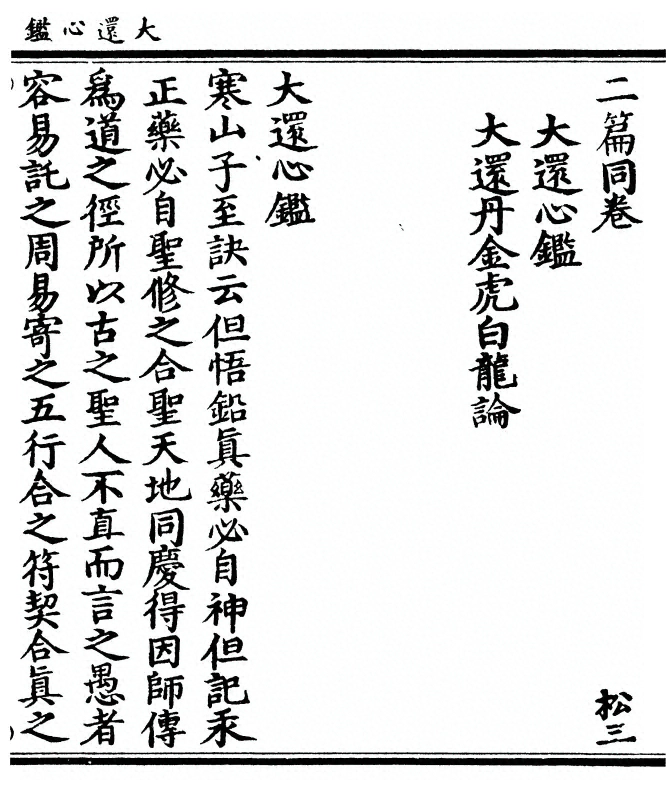 大還心鑑
二篇同卷
松三
大還心鑑
大還丹金虎白龍論
大還心鑑
寒山子至訣云但悟鉛眞藥必自神但記汞
正藥必自聖修之合聖天地同慶得因師傳
爲道之徑所以古之聖人不直而言之愚者
容易託之周易寄之五行合之符契合眞之